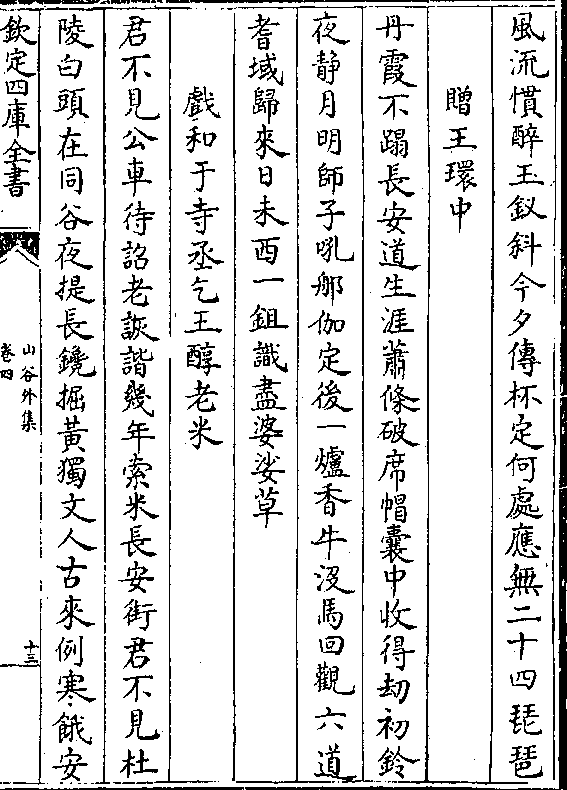 風流慣醉玉釵斜今夕傳杯定何處應無二十四琵琶
贈王環中
丹霞不蹋長安道生涯蕭條破席帽囊中收得劫初鈴
夜静月明師子吼那伽定後一爐香牛沒馬回觀六道
耆域歸來日未西一鉏識盡婆娑草
戲和于寺丞乞王醇老米
君不見公車待詔老詼諧幾年索米長安街君不見杜
陵白頭在同谷夜提長鑱掘黃獨文人古來例寒餓安
欽定四庫全書
山谷外集
卷四
十三